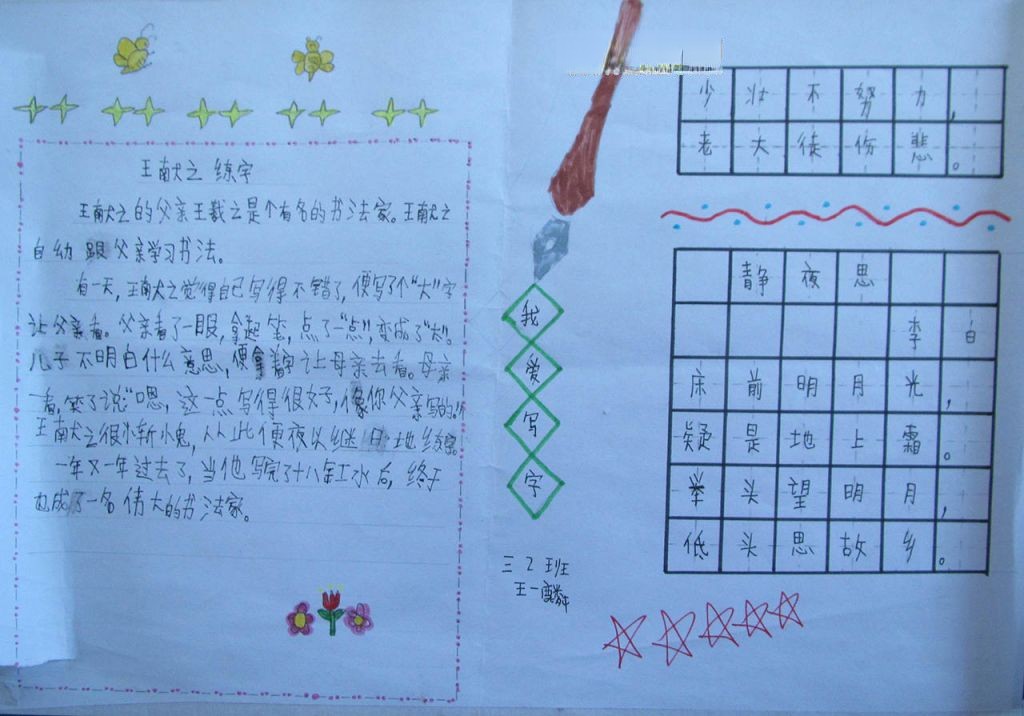 王献之 练字
王献之的父亲王羲之是个有名的书法家。王献之
自幼 跟父亲学习书法。
有一天，王献之觉得自己写得不错了，便写了个“大”字
让父亲看。父亲看了一眼，拿起笔，点了一“点”，变成了“太”。
儿子不明白什么意思，便拿着字让母亲去看。母亲
看，笑了说“嗯，这一点写得很好，像你父亲写的。”
王献之很惭愧，从此便夜以继日地练字。
一年又一年过去了，当他写完了十八缸水后，终于
也成了一名伟大的书法家。
我爱写字
三2班
王一
少壮不努力，
老大徒伤悲。
静夜思
李白
床前明月光，
疑是地上霜。
举头望明月，
低头思故乡。